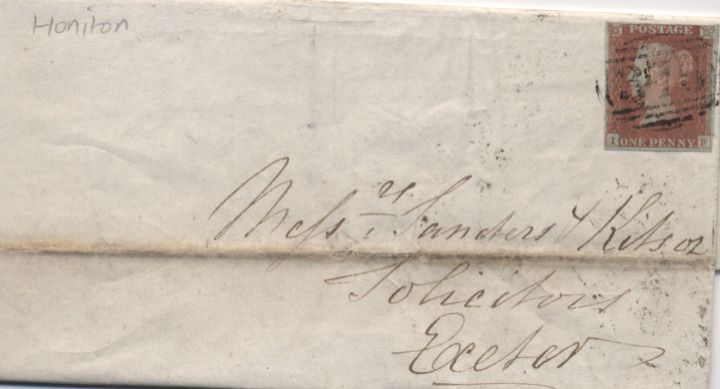 Honiton
POSTAGE
ONE PENNY
Messrs Sanders & Kitson
Solicitors
Exeter